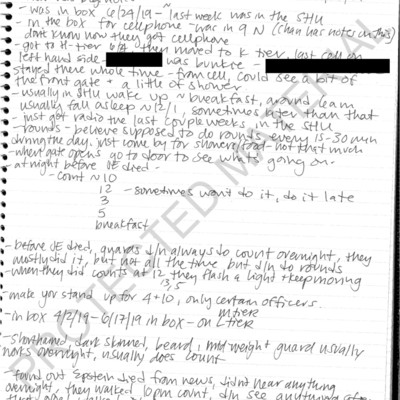 - was in box 6/24/19 - ~ last week was in the SHU
- in the box for cellphone - was in 9 N (Chan has notes on this)
dont know how they got cellphone
- got to H-tier, then moved to K tier, last cell on
left hand side - was bunkie -
stayed there whole time - from cell, could see a bit of
the front gate - a little of shower
- usually in SHU wake up ~ breakfast, around 6am
usually fall asleep ~12/1, sometimes later than that
- just got radio the last couple weeks in the SHU
- rounds - believe supposed to do rounds every 15-30 min
during the day. just come by for showers/food - not that much
- when gate opens go to door to see what's going on -
- at night before JE died -
- count ~10
12 - sometimes won't do it, do it late
3
5
breakfast
- before JE died, guards d/n always do count overnight, they
mostly did it, but not all the time but d/n do rounds
- when they did counts at 12, they flash a light + keep moving
3, 5
- make you stand up for 4 + 10, only certain officers
- in box 4/2/19 - 6/17/19 in box - on L tier
M tier
- shorthand, dark skinned, beard, mid weight guard usually
not overnight, usually does count
- found out Epstein died from news, didn't hear anything
overnight, they walked 10pm count, d/n see anything
PROTECTED MATERIAL